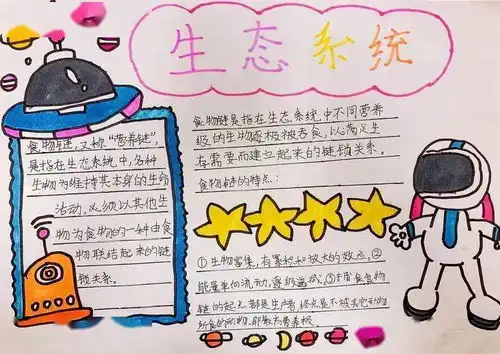 生态系统
食物链,又称"营养链",
是指在生态系统中,各种
生物为维持其本身的生命
活动,必须以其他生
物为食物的一种由食
物联结起来的链
锁关系。
食物链是指在生态系统中不同营养
级的生物逐级被吞食,以满足生
存需要而建立起来的链锁关系。
食物链的特点:
①生物富集,有累积和放大的效应,②
能量单向流动,逐级递减,③捕食食物
链的起点都是生产者,终点是不被其它动物
所食的动物,即最高营养级。